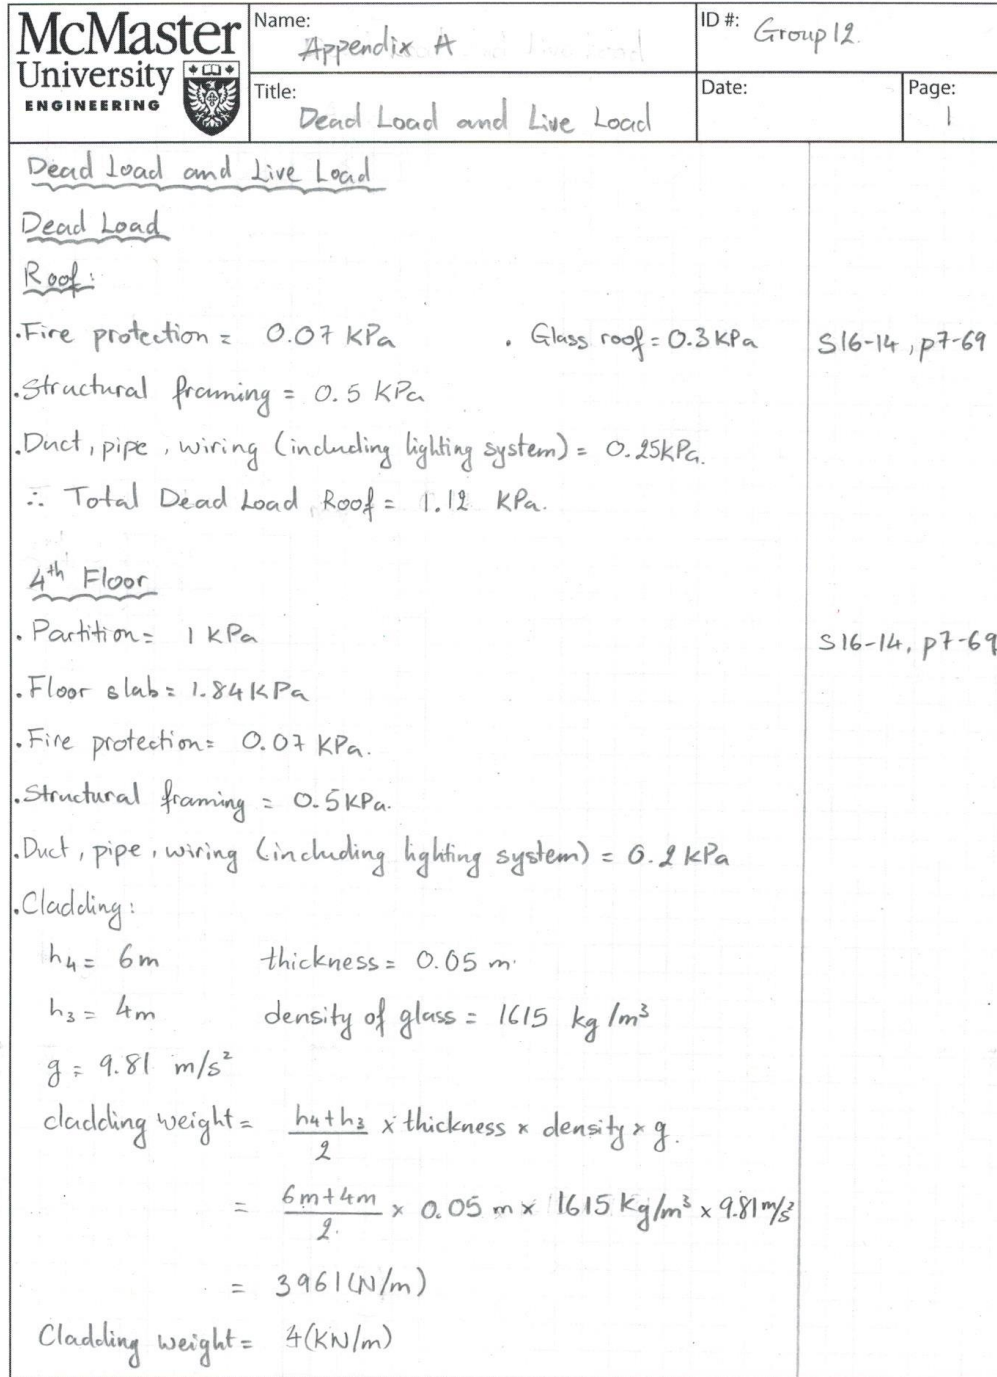 McMaster
University
ENGINEERING
Name: Appendix A
ID #: Group 12
Title: Dead Load and Live Load
Date:
Page: 1
Dead Load and Live Load
Dead Load
Roof:
.Fire protection = 0.07 KPa . Glass roof = 0.3 KPa S16-14, p7-69
.Structural framing = 0.5 KPa
.Duct, pipe, wiring (including lighting system) = 0.25kPa.
∴ Total Dead Load Roof = 1.12 KPa.
4th Floor
. Partition = 1 KPa S16-14, p7-69
.Floor slab = 1.84 KPa
.Fire protection = 0.07 KPa.
.Structural framing = 0.5KPa.
.Duct, pipe, wiring (including lighting system) = 0.2 KPa
.Cladding:
h4 = 6m thickness = 0.05 m.
h3 = 4m density of glass = 1615 kg/m³
g = 9.81 m/s²
cladding weight = (h4+h3)/2 × thickness × density × g.
= (6m+4m)/2. × 0.05 m × 1615 Kg/m³ × 9.81 m/s²
= 3961 (N/m)
Cladding weight = 4(KN/m)